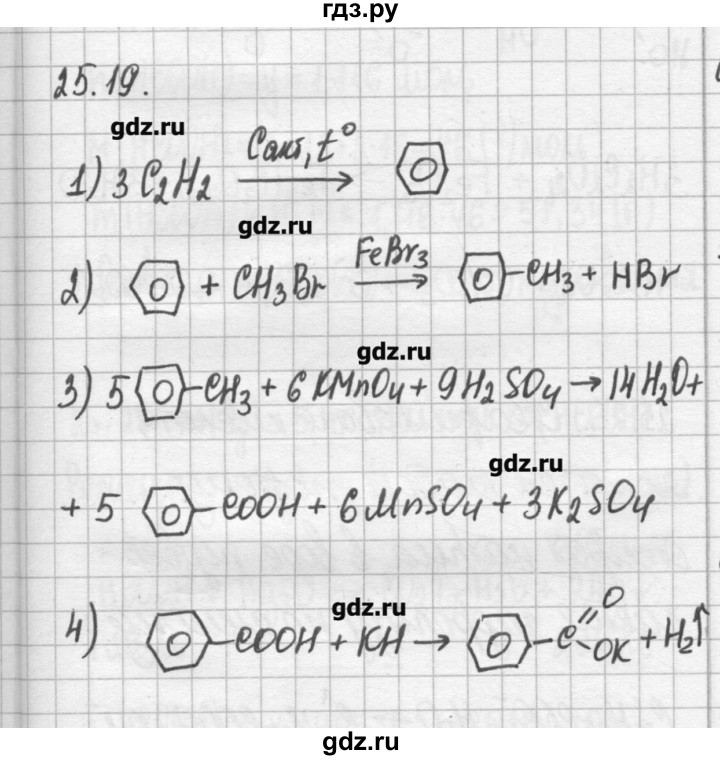 гдз.ру
25.19.
gdz.ru
1) 3 C2H2 Cакт, t° →
gdz.ru
2) + CH3Br FeBr3 → -CH3 + HBr
gdz.ru
3) 5 -CH3 + 6 KMnO4 + 9 H2SO4 → 14 H2O +
gdz.ru
+ 5 -COOH + 6 MnSO4 + 3 K2SO4
gdz.ru
4) -COOH + KH → -C =O -OK + H2↑
gdz.ru